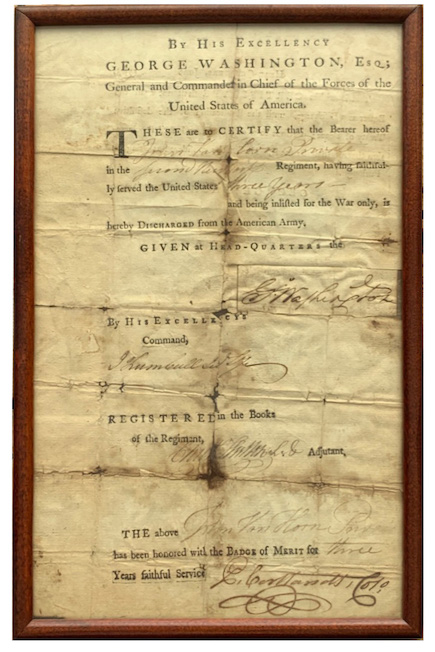 BY HIS EXCELLENCY
GEORGE WASHINGTON, Esq;
General and Commander in Chief of the Forces of the
United States of America.
THESE are to CERTIFY that the Bearer hereof
Private
in the Regiment, having faithful-
ly served the United States three years
and being inlisted for the War only, is
hereby DISCHARGED from the American Army.
GIVEN at HEAD-QUARTERS the
G Washington
By HIS EXCELLENCY'S
Command,
REGISTERED in the Books
of the Regiment,
Adjutant,
THE above Van Horn
has been honored with the BADGE of MERIT for three
Years faithful Service